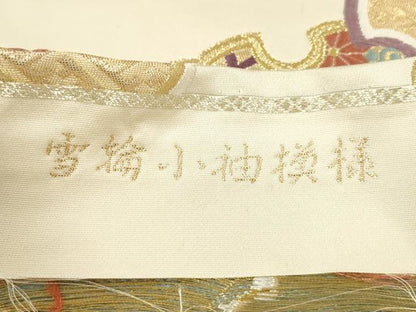 雪輪小袖模様